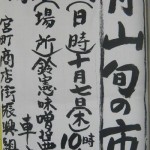 月山旬の市
日時 十月七日(木)10時
場所 鈴憲味噌醤
車
宮町商店街振興組